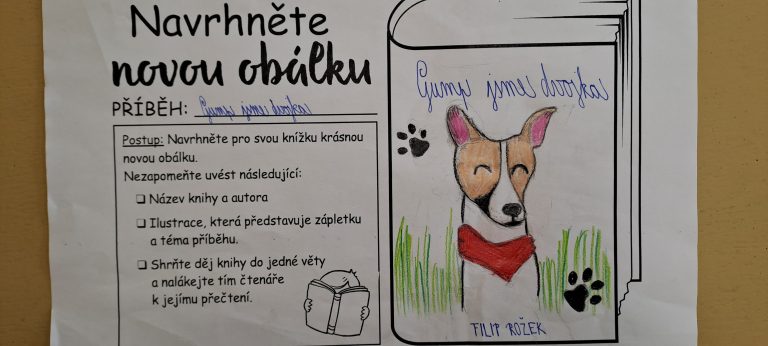 Navrhněte
novou obálku
PŘÍBĚH: Gump jsme dvojka
Postup: Navrhněte pro svou knížku krásnou
novou obálku.
Nezapomeňte uvést následující:
❑ Název knihy a autora
❑ Ilustrace, která představuje zápletku
a téma příběhu.
❑ Shrňte děj knihy do jedné věty
a nalákejte tím čtenáře
k jejímu přečtení.
Gump jsme dvojka
FILIP ROŽEK